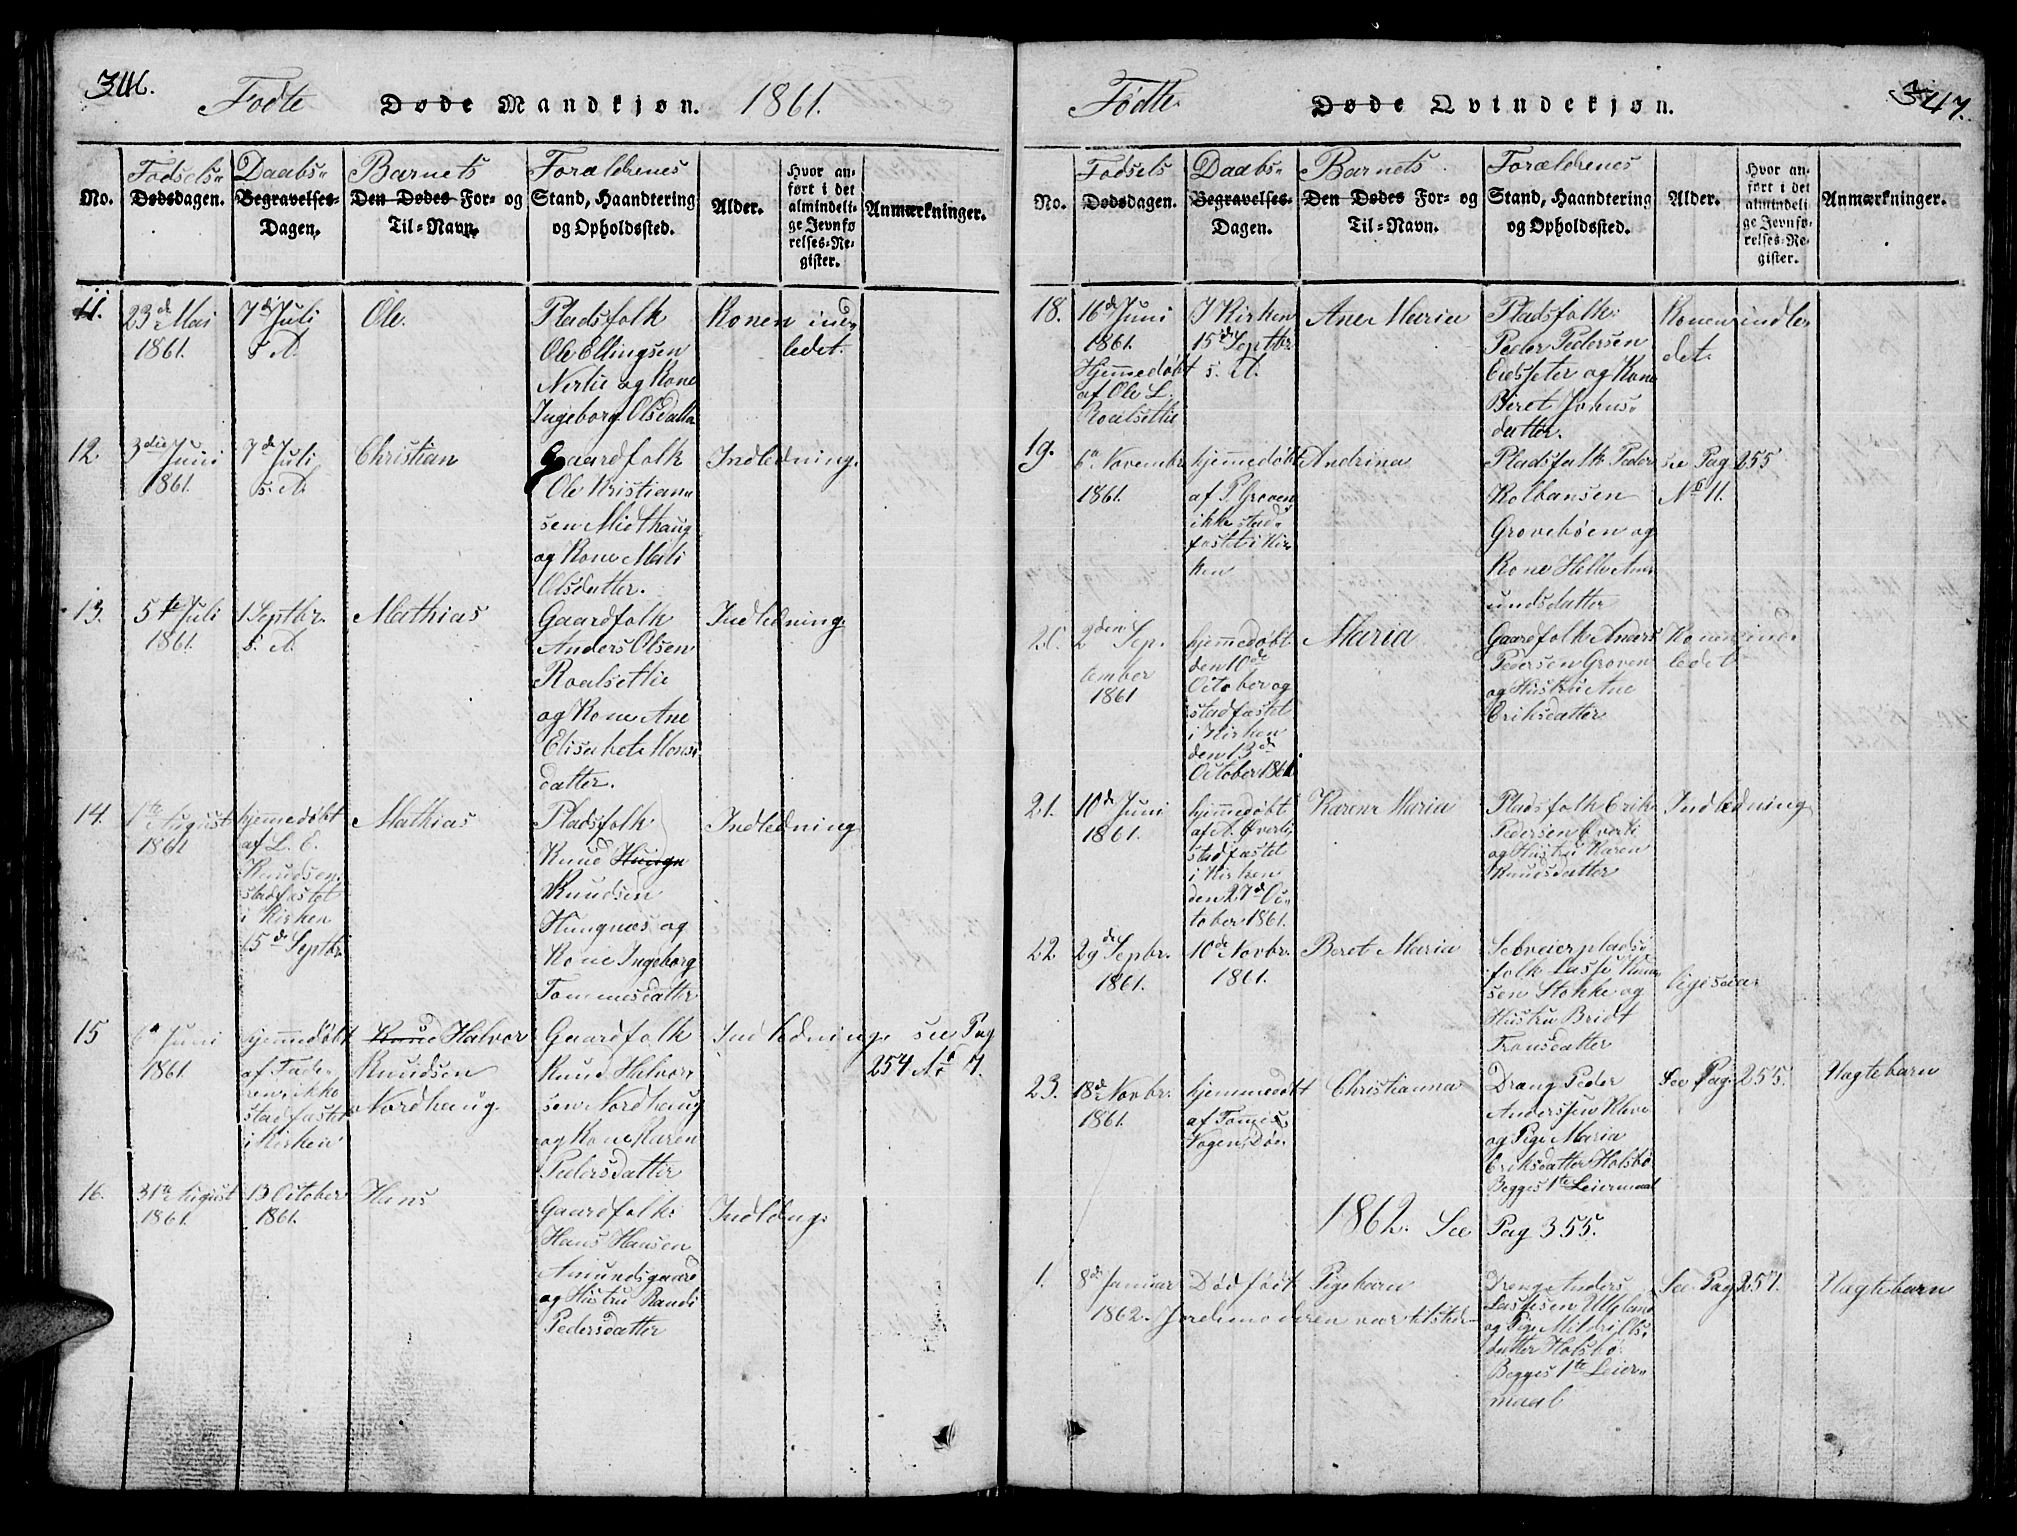 346.
Fødte Døde Mandkjøn. 1861.
No.
Fødsels-
Dødsdagen.
Daabs-
Begravelses-
Dagen.
Barnets
Den Dødes For- og
Til-Navn.
Forældrenes
Stand, Haandtering
og Opholdssted.
Alder.
Hvor an-
ført i det
almindeli-
ge Jevnfø-
relses-Re-
gister.
Anmærkninger.
11.
23de Mai
1861.
7de Juli
s. A.
Ole.
Pladsfolk
Ole Ellingsen
og Kone
Ingeborg Olsdatter
Konen ind-
ledet.
12.
3die Juni
1861.
7de Juli
s. A.
Christian
Gaardfolk
Ole Kristian-
sen Midthaug
og Kone Mali
Olsdatter.
Indledning.
13.
5te Juli
1861.
1 Septbr.
s. A.
Mathias
Gaardfolk
Anders Olsen
Roalsetlie
og Kone Ane
Elisabet Mons-
datter.
Indledning.
14.
1te August
1861
hjemmedøbt
af L. E.
Knudsen,
stadfæstet
i Kirken
15de Septbr.
Mathias
Pladsfolk
Knud Hungn
Knudsen
Hungnæs og
Kone Ingeborg
Tommesdatter
Indledning
15
6te Juni
1861.
hjemmedøbt
af Fade-
ren, ikke
stadfæstet
i Kirken
Knud Halvor
Knudsen
Nordhaug.
Gaardfolk
Knud Halvor-
sen Nordhaug
og Kone Karen
Pedersdatter
Indledning. see Pag
254 No 7.
16.
31te August
1861.
13 October
1861.
Hans
Gaardfolk
Hans Hansen
Amundsgaard
og Hustru Randi
Pedersdatter
Indledng.
347.
Fødte Døde Qvindekjøn.
No.
Fødsels
Dødsdagen.
Daabs-
Begravelses-
Dagen.
Barnets
Den Dødes For- og
Til-Navn.
Forældrenes
Stand, Haandtering
og Opholdssted.
Alder.
Hvor an-
ført i det
almindeli-
ge Jevnfø-
relses-Re-
gister.
Anmærkninger.
18.
16de Juni
1861.
Hjemmedøbt
af Ole L.
Roalsetlie
I Kirken
15de Septbr.
s. A.
Ane Maria
Pladsfolk
Peder Pedersen
og Kone
Beret Johns-
datter.
Konen indle
det.
19.
6te Novembr.
1861.
hjemmedøbt
af P. Groven
ikke stad-
fæstet i Kir-
ken
Andrina
Pladsfolk Peder
Kolbansen
Grovebøen og
Kone Am-
undsdatter
see Pag. 255
No 11.
20.
2den Sep-
tember
1861
hjemmedøbt
den 10de
October og
stadfæstet
i Kirken
den 13de
October 1861
Maria
Gaardfolk Anders
Pedersen Groven
og Hustru Ane
Eriksdatter
Konen ind-
ledet
21.
10de Juni
1861.
hjemmedøbt
af A. Øverli,
stadfæstet
i Kirken
den 27de Oc-
tober 1861.
Karen Maria
Pladsfolk Erik
Pedersen Øverli
og Hustru Karen
Knudsdatter
Indledning
22
29de Sepbr.
1861.
10de Novbr.
1861.
Beret Maria
Selveierplads-
folk Lasse Knud-
sen Stokke og
Hustru Bridt
Tronsdatter
ligesaa
23.
18de Novbr.
1861.
hjemmedøbt
af
Christianna
Dreng Peder
Anderssen
og Pige Maria
Eriksdatter Holsbø
Begges 1te Leiermaal
See Pag. 255.
Uægtebarn
1862. See Pag 355.
1.
8de Januar
1862.
Dødfødt Pigebarn
Jordemoderen var tilstede
Dreng Anders
Lassesen
og Pige Mildri Ols-
datter Holsbø.
Begges 1te Leier-
maal
See Pag 257.
Uægtebarn